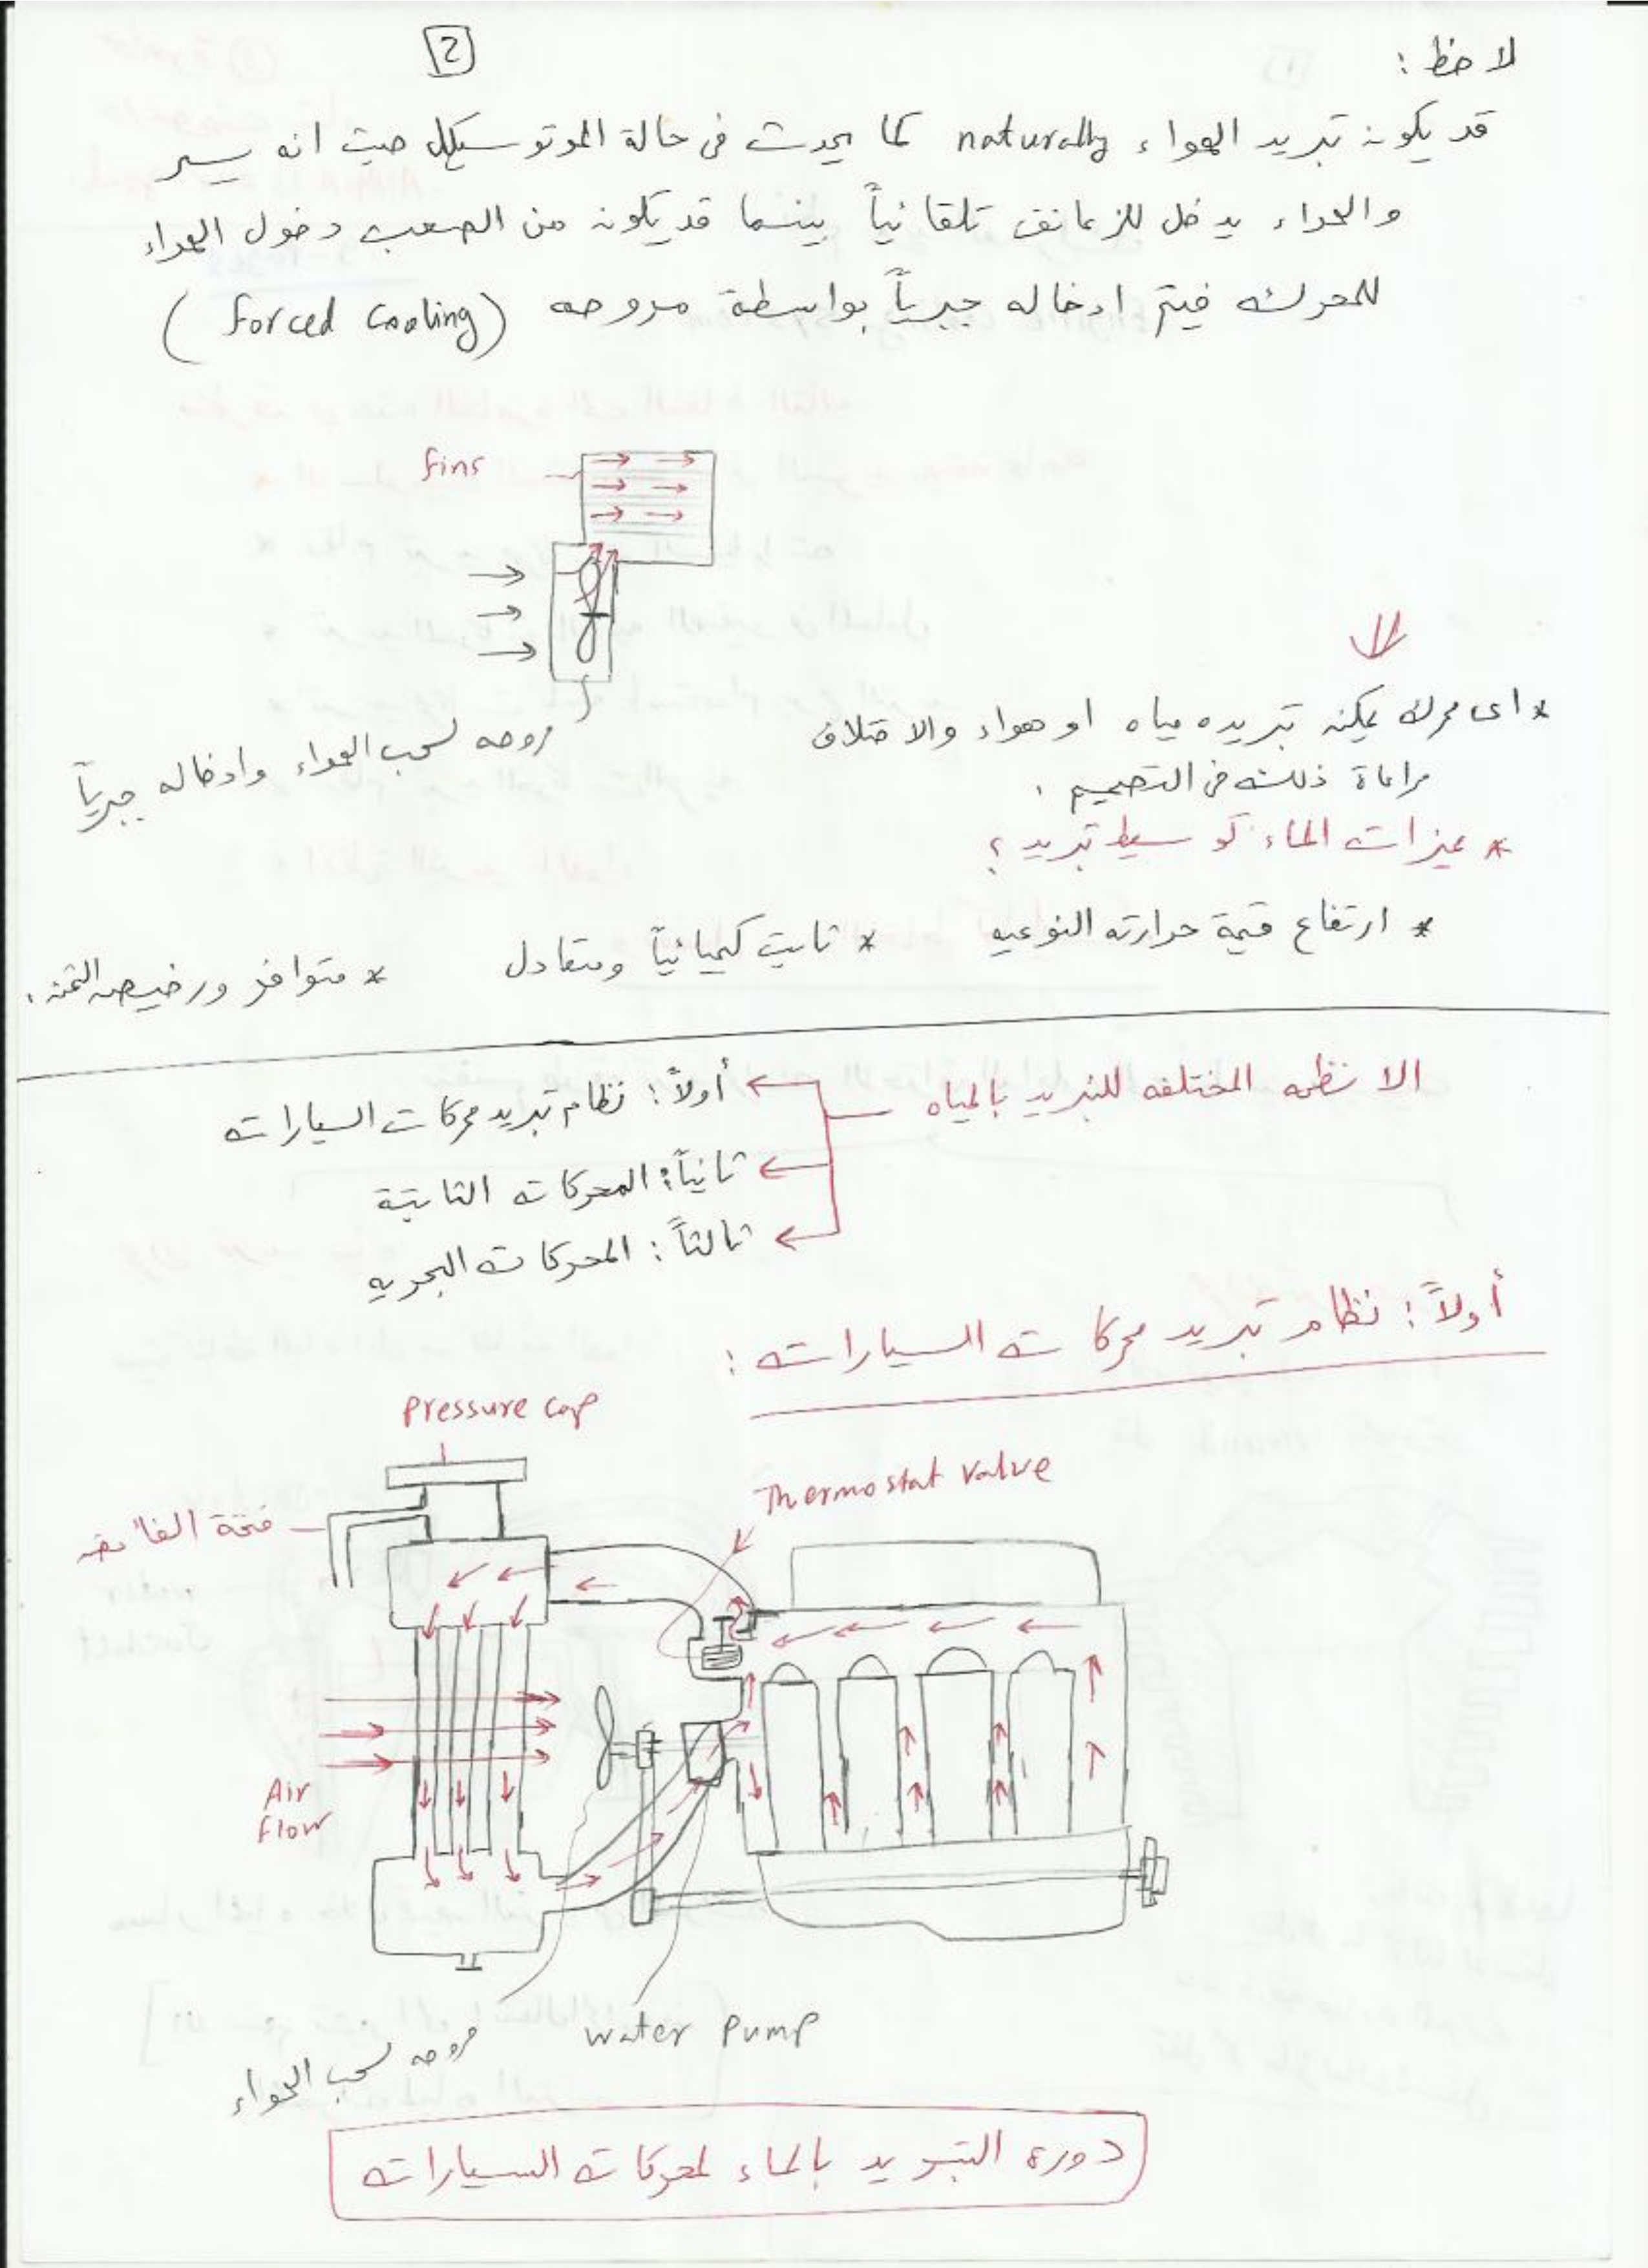 2
لاحظ :
قد يكون تبريد الهواء naturally كما يحدث فى حالة الموتوسيكل حيث انه يسير
والهواء يدخل للزعانف تلقائياً بينما قد يكون من الصعب دخول الهواء
للمحرك فيتم ادخاله جبرياً بواسطة مروحه (Forced Cooling)
fins
مروحه لسحب الهواء وادخاله جبرياً
* اى محرك يمكن تبريده مياه او هواء والاختلاف
مراعاة ذلك فى التصميم .
* مميزات الماء كوسيط تبريد ؟
* ارتفاع قيمة حرارته النوعيه * ثابت كيميائياً ومتعادل * متوافر ورخيص الثمن .
الانظمه المختلفه للتبريد بالمياه
أولاً : نظام تبريد محركات السيارات
ثانياً : المحركات الثابتة
ثالثاً : المحركات البحريه
أولاً : نظام تبريد محركات السيارات :
Pressure cap
Thermostat valve
فتحة الفائض
Air
Flow
water Pump
مروحه لسحب الهواء
دورة التبريد بالماء لمحركات السيارات